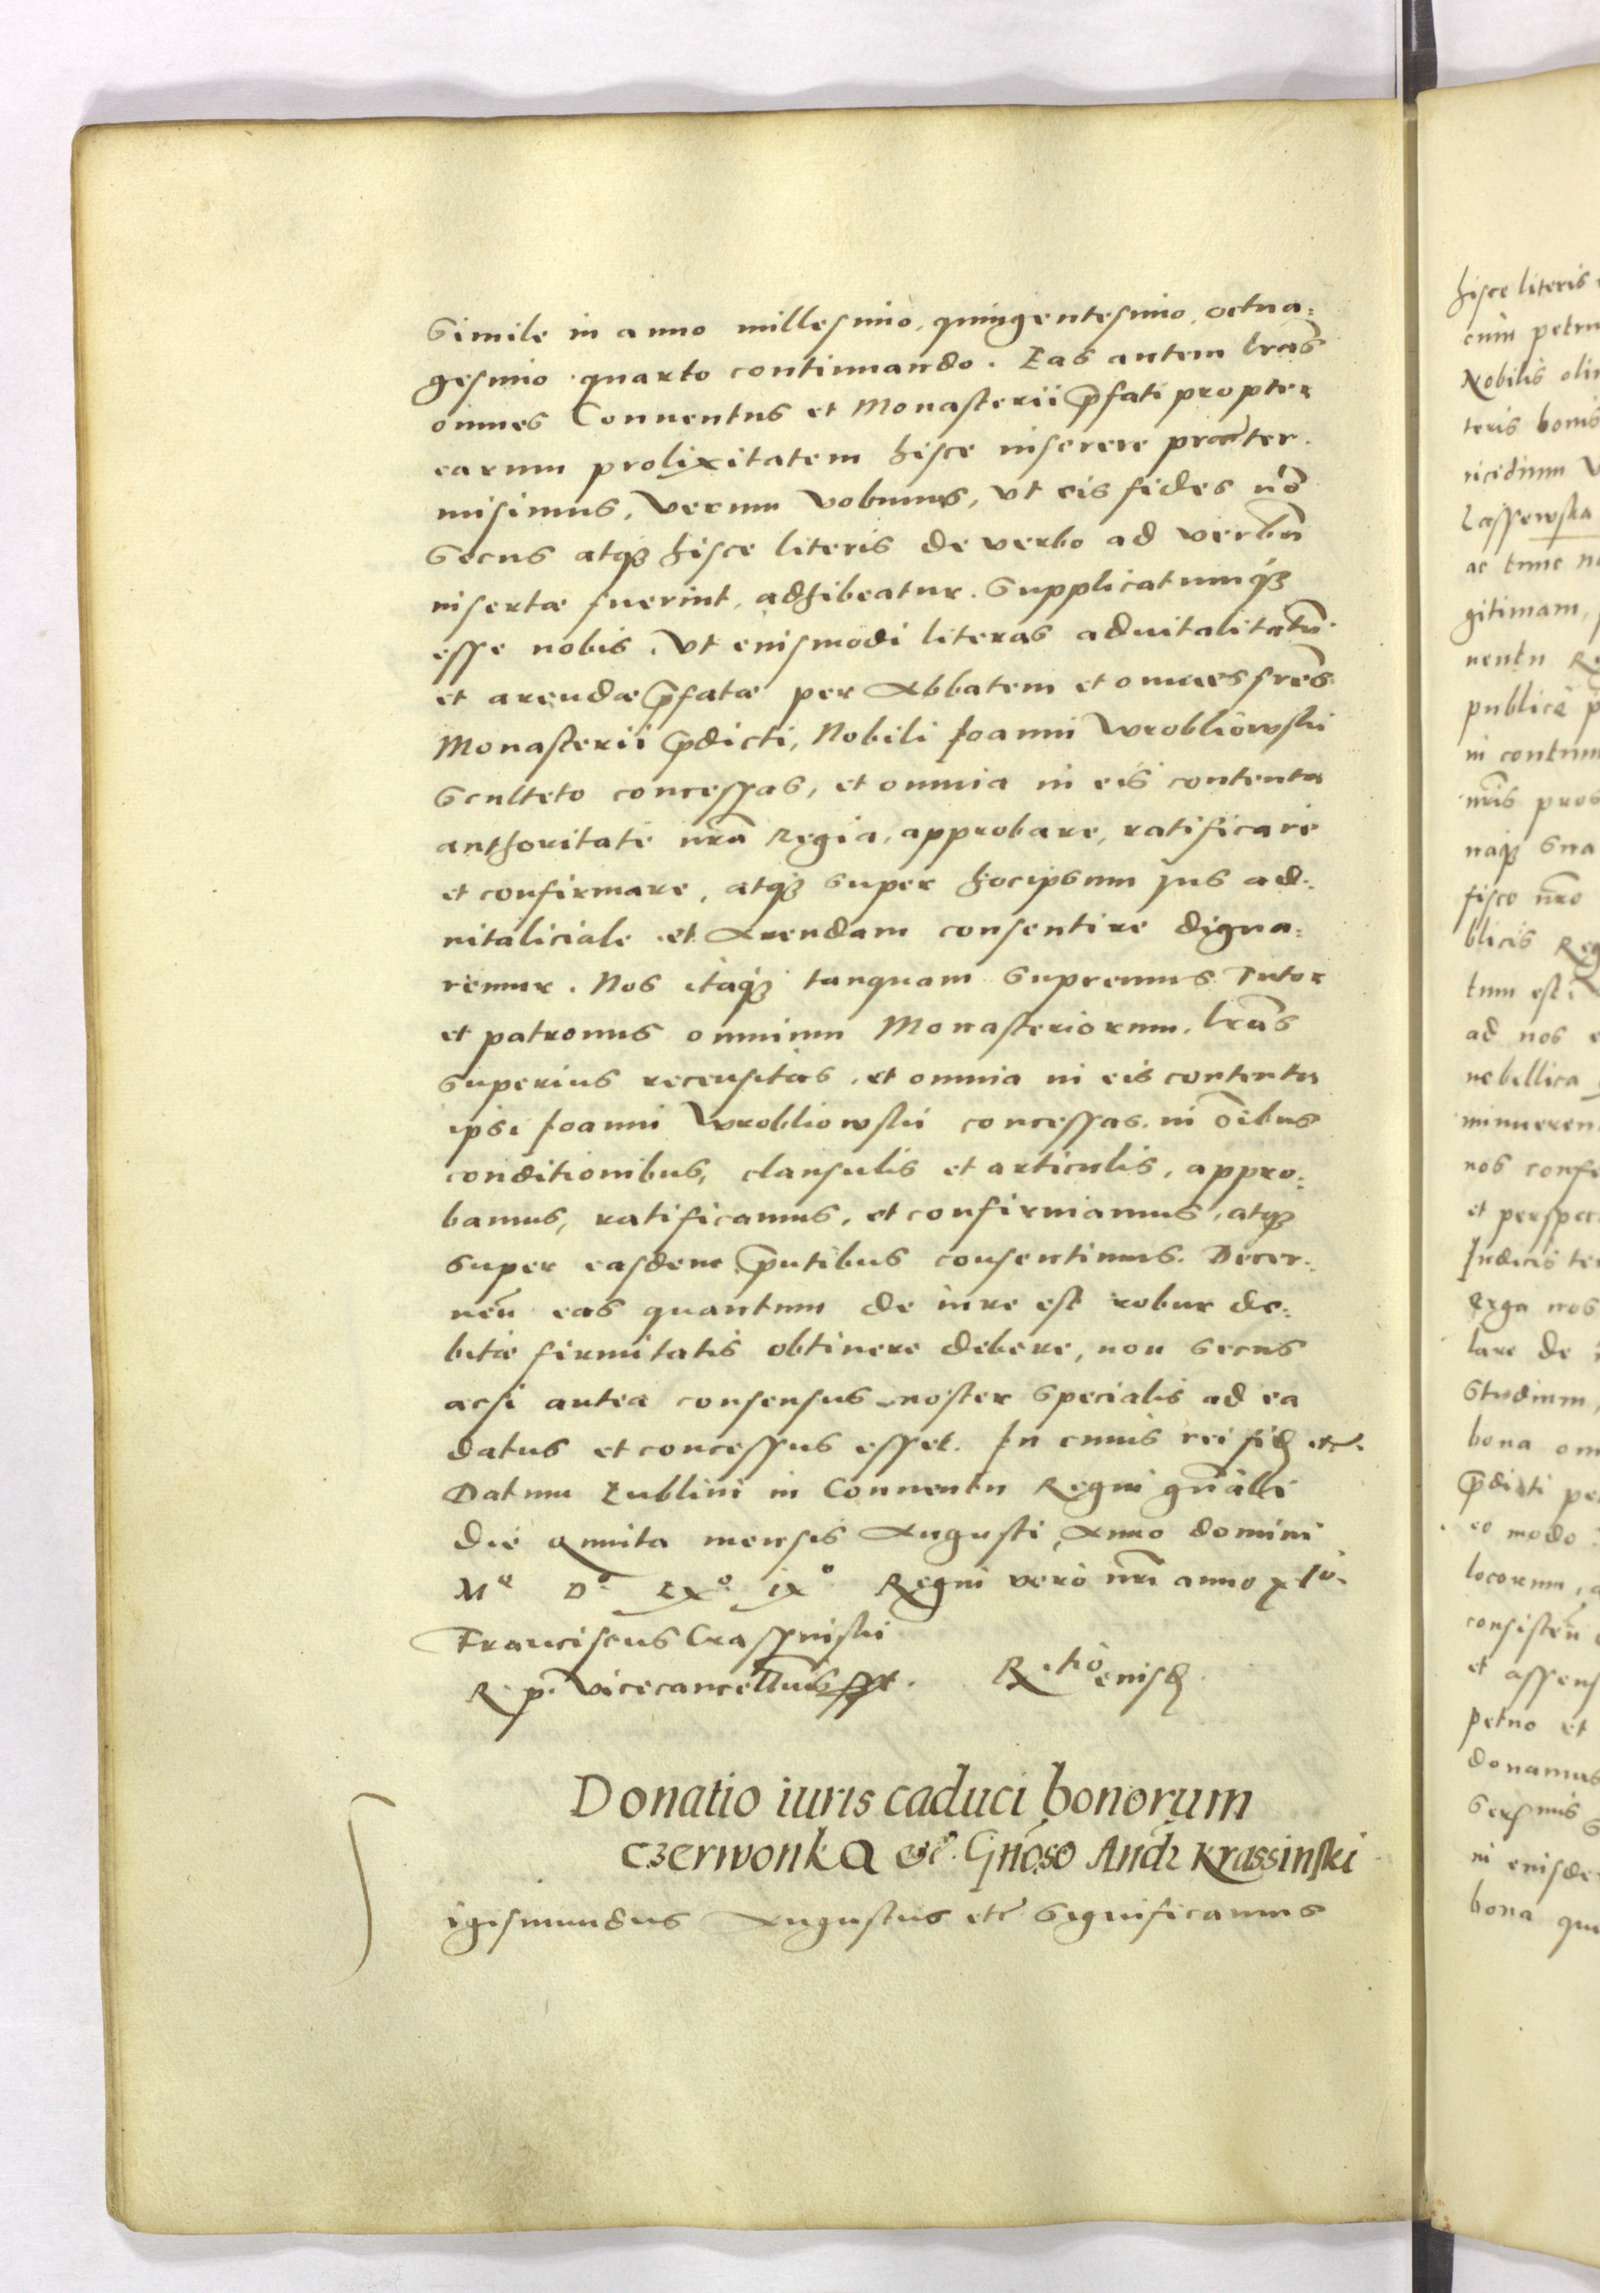 Simile in anno millesimo, quingentesimo, octua:
gesimo quarto continuando. Eas autem lr̃as
omnes Conuentus et Monasterii p̃fati propter
earum prolixitatem hisce inserere præter.
misimus, verum volumus, vt eis fides nõ
secus atqꝫ hisce literis de verbo ad verbũ
insertæ fuerint, adhibeatur. Supplicatumqꝫ
esse nobis, vt eiusmodi literas aduitalitatũ
et arendæ p̃fatæ per Abbatem et omnes fr̃es
Monasterii p̃dicti, Nobili Joanni Wrobliowski
Sculteto concessas, et omnia in eis contenta
authoritate nr̃a Regia, approbare, ratificare
et confirmare, atqꝫ super hocipsum Jus ad:
uitaliciale et Arendam consentire digna:
remur. Nos itaqꝫ tanquam supremus Tutor
et patronus omnium Monasteriorum, lr̃as
superius recensitas, et omnia in eis contenta
ipsi Joanni Wrobliowski concessas, in oĩbus
conditionibus, clausulis et articulis, appro:
bamus, ratificamus, et confirmamus, atqꝫ
super easdem p̃ntibus consentimus. Decer:
neñ eas quantum de iure est robur de:
bitæ firmitatis obtinere debere, non secus
acsi antea consensus noster specialis ad ea
datus et concessus esset. In cuius rei fidẽ etc.
Datum Lublini in Conuentu Regni gñali
die Quinta mensis Augusti, Anno domini
Mº Dº LXº iXº Regni vero nr̃i anno xlº.
Franciscus Crassinski
R. p. Vicecancellarius sst. Rtio eiusdẽ
Donatio iuris caduci bonorum
czerwonka etc. Gñoso Andr̃ Krassinski
S
igismundus Augustus etc Significamus
hisce literis
cum petru
Nobilis oli
teris bonis
ricidium
Lassewska
ac tunc
gitimam,
nentu
publicè
in contum
nr̃is
naqꝫ sua
fisco nr̃o
blicis Reg
tum est.
ad nos
nebellica
minueren
nos confi
et perspec
Judicis
erga nos
lare de
Studium,
bona om
p̃dicti
eo modo
locorum,
consisteñ
et assens
petuo et
donamus
in eiusde
bona qu